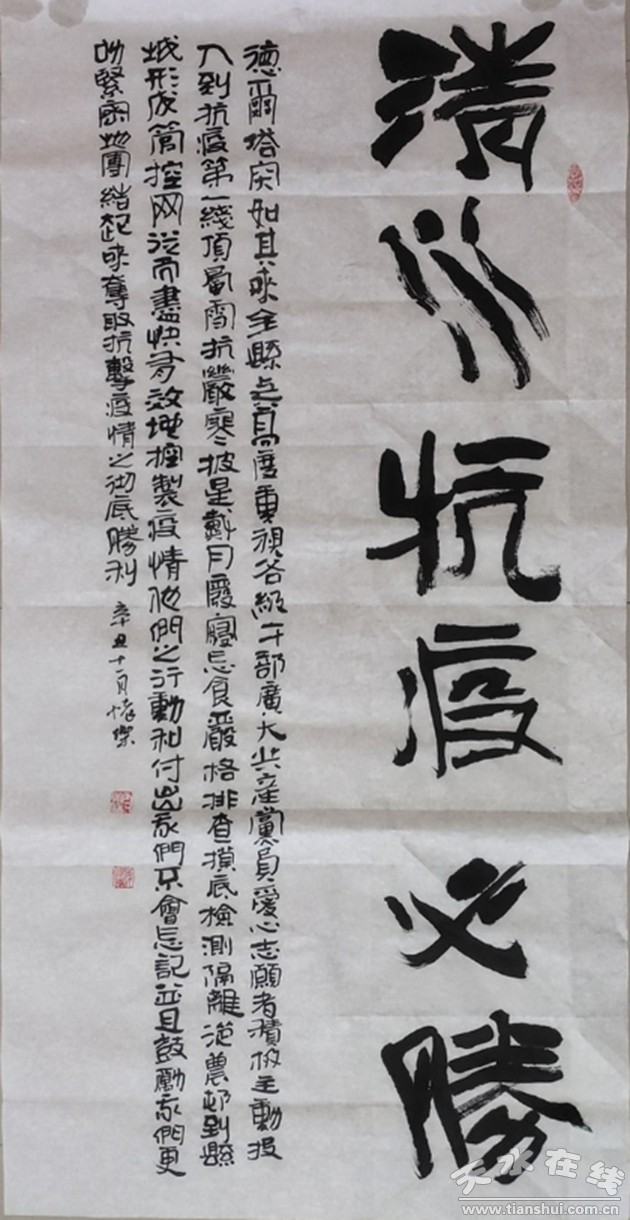 清水抗疫必勝
德爾塔突如其來全縣上下高度重視各級干部廣大共産黨員愛心志願者積极主動投
入到抗疫第一綫頂風雪抗嚴寒披星戴月廢寢忘食嚴格排查摸底檢測隔離從農邨到縣
城形成管控网从而盡快有效地控製疫情他們之行動和付出我們不會忘記並且鼓勵我們更
加緊密地團結起來奪取抗擊疫情之彻底勝利
辛丑十一月 傑
天水在线
www.tianshui.com.cn